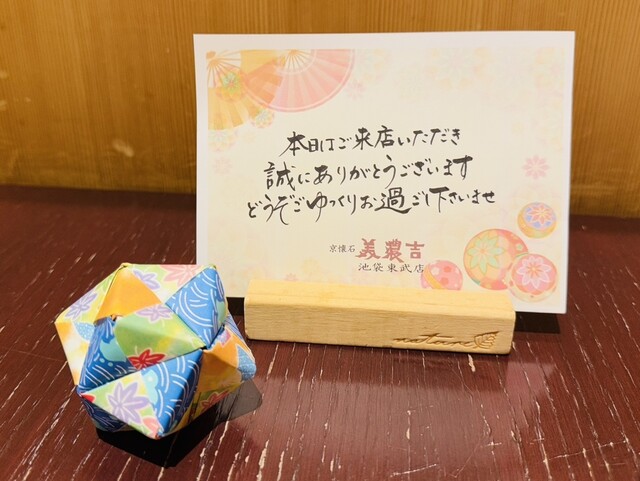 本日はご来店いただき
誠にありがとうございます
どうぞごゆっくりお過ごし下さいませ
京懐石 美濃吉
池袋東武店